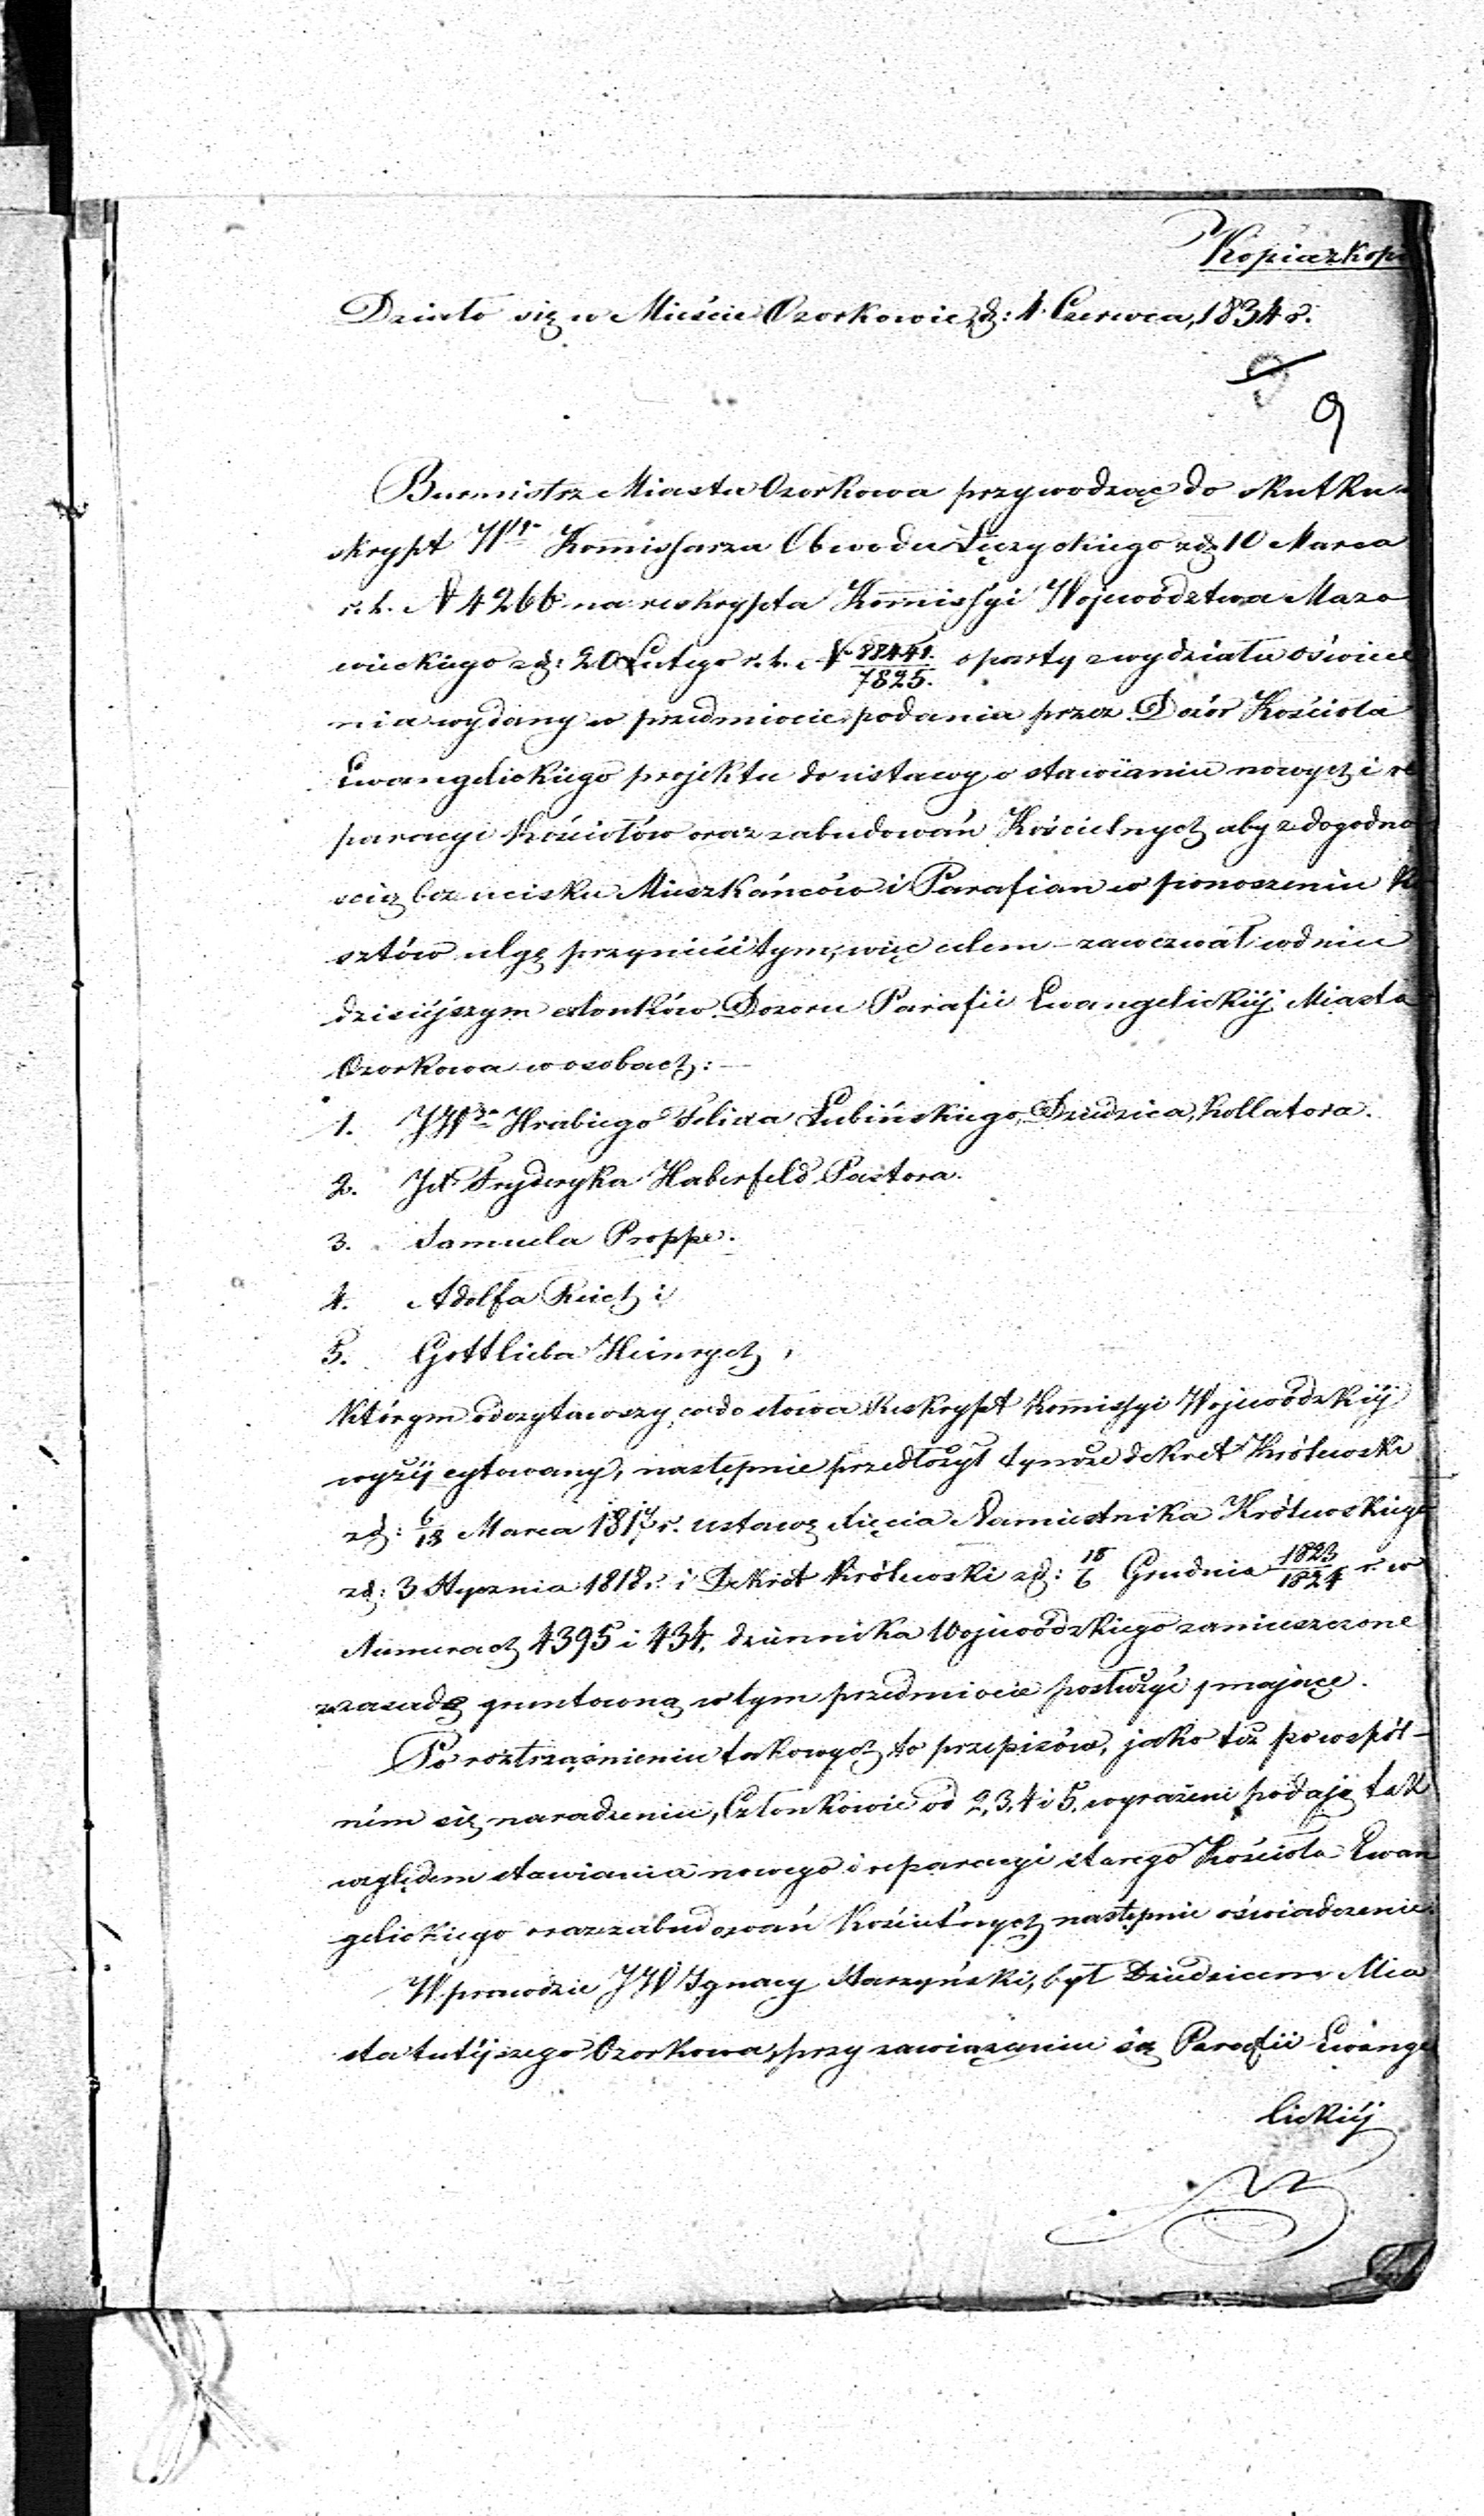 Kopia z kopi
Działo się w Mieście Ozorkowie, d: 4 Czerwca, 1834 r.
9
9
Burmistrz Miasta Ozorkowa przywodząc do skutku
skrypt Wgo Kommissarza Obwodu Łęczyckiego z d: 10 Marca
r. b. N 4266 na reskrypta Kommissyi Województwa Mazo
wieckiego z d: 20 Lutego r. b. N 88441./7825. oparty z wydziału oświece
nia wydany w przedmiocie podania przez Dozór Kościoła
Ewangelickiego projektu do ustawy o stawianiu nowych i re
paracyi Kościołów oraz zabudowań Kościelnych aby z dogodno
scią bez ucisku Mieszkańców i Parafian w ponoszeniu ko
sztów ulgę przynieść tym, więc celem zawezwał w dniu
dzisiéjszym członków Dozoru Parafii Ewangelickiéj Miasta
Ozorkowa w osobach:
1. JWgo Hrabiego Felixa Łubińskiego, Dziedzica, Kollatora.
2. JX Fryderyka Haberfeld Pastora.
3. Samuela Proppe.
4. Adolfa Reich i
5. Gottlieba Heinrych,
Którym odczytawszy co do słowa Reskrypt Kommissyi Wojewódzkiéj
wyżéj cytowany, następnie przedłożył tymże dekret Królewski
z d: 6/18 Marca 1817 r. ustawę Xięcia Namiestnika Królewskiego
z d: 3 Stycznia 1818 r. i Dekret Królewski z d: 18/6 Grudnia 1823/1824 r. w
Numerach 4395 i 434, dziennika Wojewódzkiego zamieszczone
zasadę gruntowną w tym przedmiocie posłużyć mające.
Po roztrząśnieniu takowych to przepisów, jako też po wspól-
ném się naradzeniu, Członkowie od 2, 3, 4 i 5, wyrażeni podają tak
względem stawiania nowego i reparacyi starego Kościoła Ewan
gelickiego oraz zabudowań Kościelnych następnie oświadczenie.
W prawdzie JW Ignacy Starzyński, był Dziedzicem Mia
sta tutéjszego Ozorkowa, przy zawiązaniu się Parafii Ewange
lickiéj